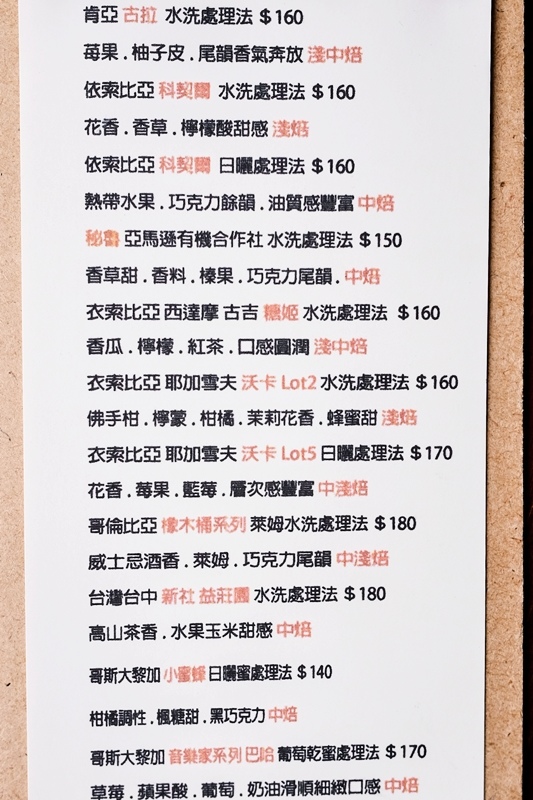 肯亞 古拉 水洗處理法 $160
莓果．柚子皮．尾韻香氣奔放 淺中焙
依索比亞 科契爾 水洗處理法 $160
花香．香草．檸檬酸甜感 淺焙
依索比亞 科契爾 日曬處理法 $160
熱帶水果．巧克力餘韻．油質感豐富 中焙
秘魯 亞馬遜有機合作社 水洗處理法 $150
香草甜．香料．榛果．巧克力尾韻．中焙
衣索比亞 西達摩 古吉 糖姬 水洗處理法 $160
香瓜．檸檬．紅茶．口感圓潤 淺中焙
衣索比亞 耶加雪夫 沃卡 Lot2 水洗處理法 $160
佛手柑．檸蒙．柑橘．茉莉花香．蜂蜜甜 淺焙
衣索比亞 耶加雪夫 沃卡 Lot5 日曬處理法 $170
花香．莓果．藍莓．層次感豐富 中淺焙
哥倫比亞 橡木桶系列 萊姆水洗處理法 $180
威士忌酒香．萊姆．巧克力尾韻 中淺焙
台灣台中 新社 益莊園 水洗處理法 $180
高山茶香．水果玉米甜感 中焙
哥斯大黎加 小蜜蜂 日曬蜜處理法 $140
柑橘調性．楓糖甜．黑巧克力 中焙
哥斯大黎加 音樂家系列 巴哈 葡萄乾蜜處理法 $170
草莓．蘋果酸．葡萄．奶油滑順細緻口感 中焙